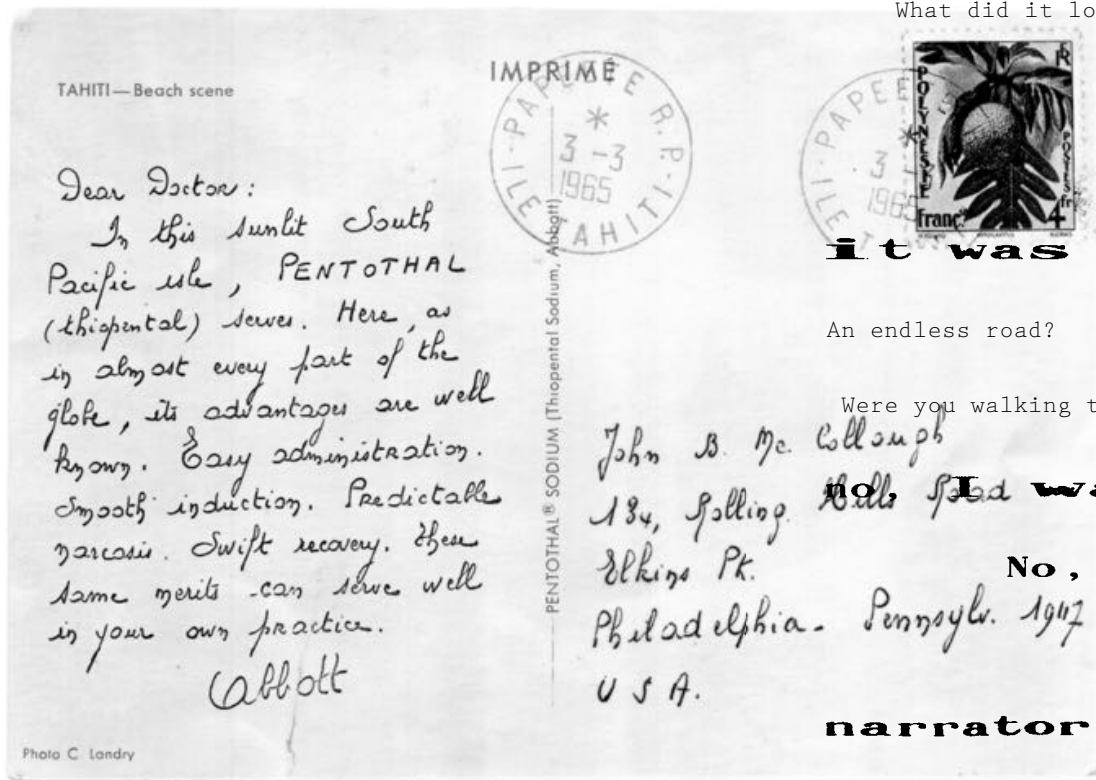 What did it lo
IMPRIMÉ
TAHITI — Beach scene
PAPEETE R.P.
3 -3
1965
TAHITI
PAPEE
3
196
POLYNESIE
Franç
RF
POSTES
4 fr
it was
Dear Doctor:
In this sunlit South
Pacific isle, PENTOTHAL
(thiopental) serves. Here, as
in almost every part of the
globe, its advantages are well
known. Easy administration.
Smooth induction. Predictable
narcosis. Swift recovery. These
same merits can serve well
in your own practice.
Abbott
PENTOTHAL® SODIUM (Thiopental Sodium, Abbott)
An endless road?
Were you walking t
John B. Mc. Collough
134, Rolling Hills Road
no, I wa
Elkins Pk.
No,
Philadelphia - Pennsylv. 19117
U S A.
narrator
Photo C. Landry